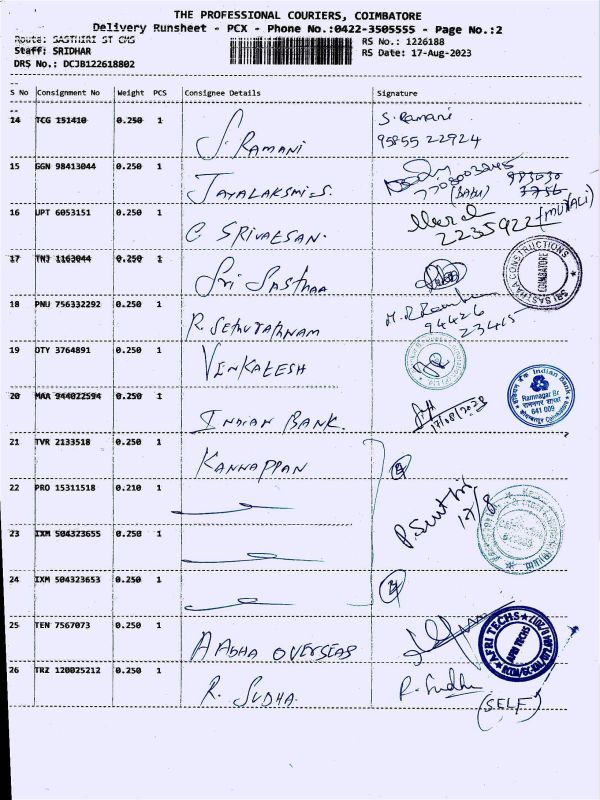 THE PROFESSIONAL COURIERS, COIMBATORE
Delivery Runsheet - PCX - Phone No.:0422-3505555 - Page No.:2
Route: SASTHIRI ST CMS
RS No.: 1226188
Staff: SRIDHAR
RS Date: 17-Aug-2023
DRS No.: DCJB122618802
S No Consignment No Weight PCS Consignee Details Signature
14 TCG 151410 0.250 1 S. RAMANI S. Ramani
95855 22924
15 GGN 98413044 0.250 1 JAYALAKSMI-S. 7708003245
(BABU)
16 UPT 6053151 0.250 1 C SRIVATSAN. 2235922 (MURALI)
17 TNJ 1163044 0.250 1 Sri Sasthaa
SRI SASTHAA CONSTRUCTIONS
COIMBATORE
18 PNU 756332292 0.250 1 R. SETHURATHNAM 94426
23465
19 OTY 3764891 0.250 1 VENKATESH
20 MAA 944022594 0.250 1 INDIAN BANK. 17/08/2023
Indian Bank
Ramnagar Br
641 009
21 TVR 2133518 0.250 1 KANNAPPAN
22 PRO 15311518 0.210 1
17/8
23 IXM 504323655 0.250 1
24 IXM 504323653 0.250 1
25 TEN 7567073 0.250 1 AABHA OVERSEAS
AFRI TECHS
26 TRZ 120025212 0.250 1 R. SUDHA. R. Sudha
(SELF)